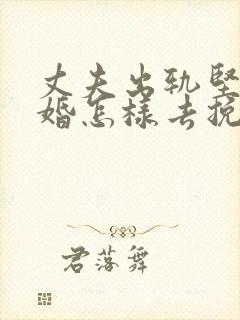 丈夫出轨坚
婚怎样去挽
君落舞